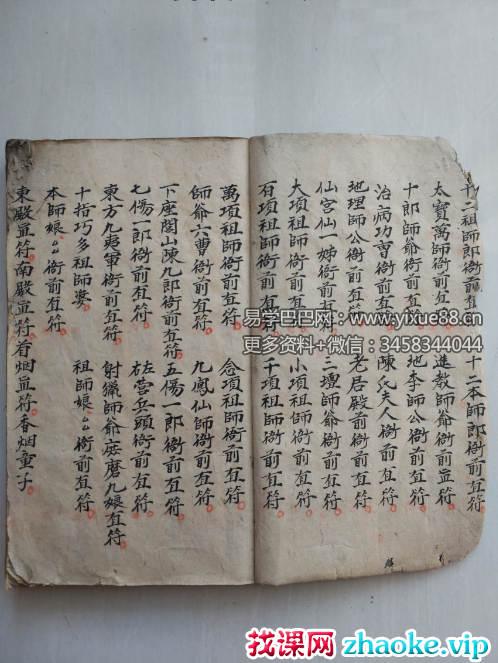 十二祖師郎衙前直符 十二本師郎衙前直符
太寶萬師衙前直符 進教師爺衙前直符
十郎師爺衙前直符 地李師公衙前直符
治病功曹衙前直符 陳氏夫人衙前直符
地理師公衙前直符 老居殿前衙前直符
仙宮仙一姊衙前直符 三壇師爺衙前直符
大項祖師衙前直符 小項祖師衙前直符
百項祖師衙前直符 千項祖師衙前直符
萬項祖師衙前直符 念項祖師衙前直符
師爺六曹衙前直符 九鳳仙師衙前直符
下座閭山陳九郎衙前直符
七傷一郎衙前直符 五傷一郎衙前直符
東方九夷軍衙前直符 左营兵頭衙前直符
十指巧多祖師婆 射獵師爺 磨九娘直符
本師娘衙前直符 祖師娘衙前直符
東殿直符南殿直符 烟直符香烟童子
易学巴巴网：www.yixue88.cn
更多资料+微信：3458344044
找课网 zhaoke.vip